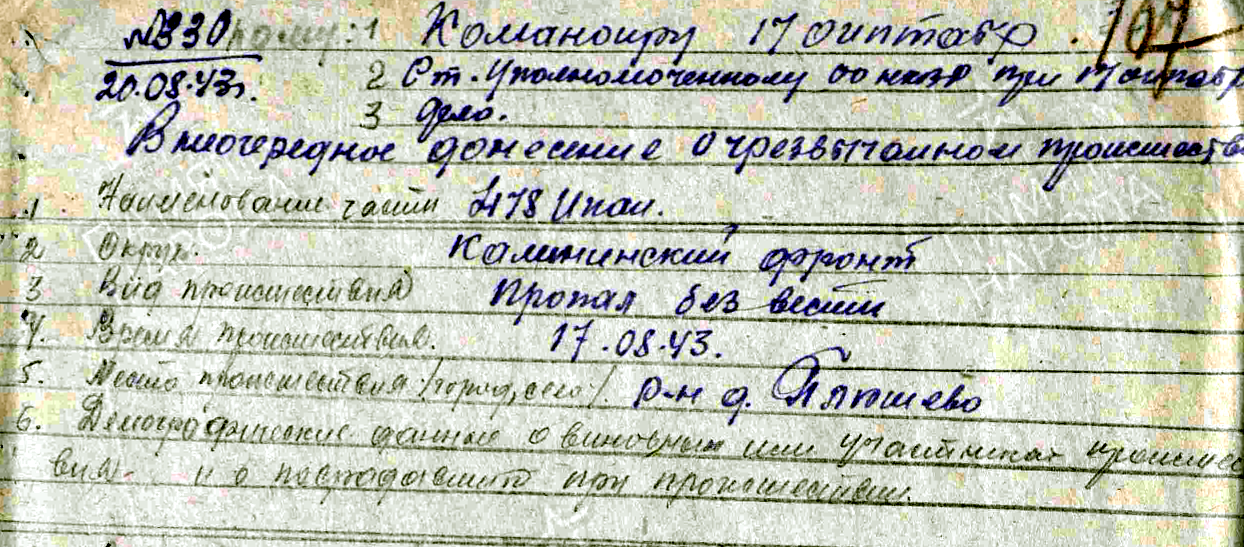 №330 кому: 1 Командиру 17 оиптабр. 107
20.08.43г. 2 Ст. уполномоченному оо нквд при 17 оиптабр
3 дело.
Внеочередное донесение о чрезвычайном происшеств
1 Наименование части 478 Иптап.
2 Округ. Калининский фронт
3 Вид происшествия Пропал без вести
4. Время происшествия. 17.08.43.
5. Место происшествия /город, село/. р-н д.
6. Демографические данные о виновных или участниках происшес
вия. и о пострадавших при происшествии.